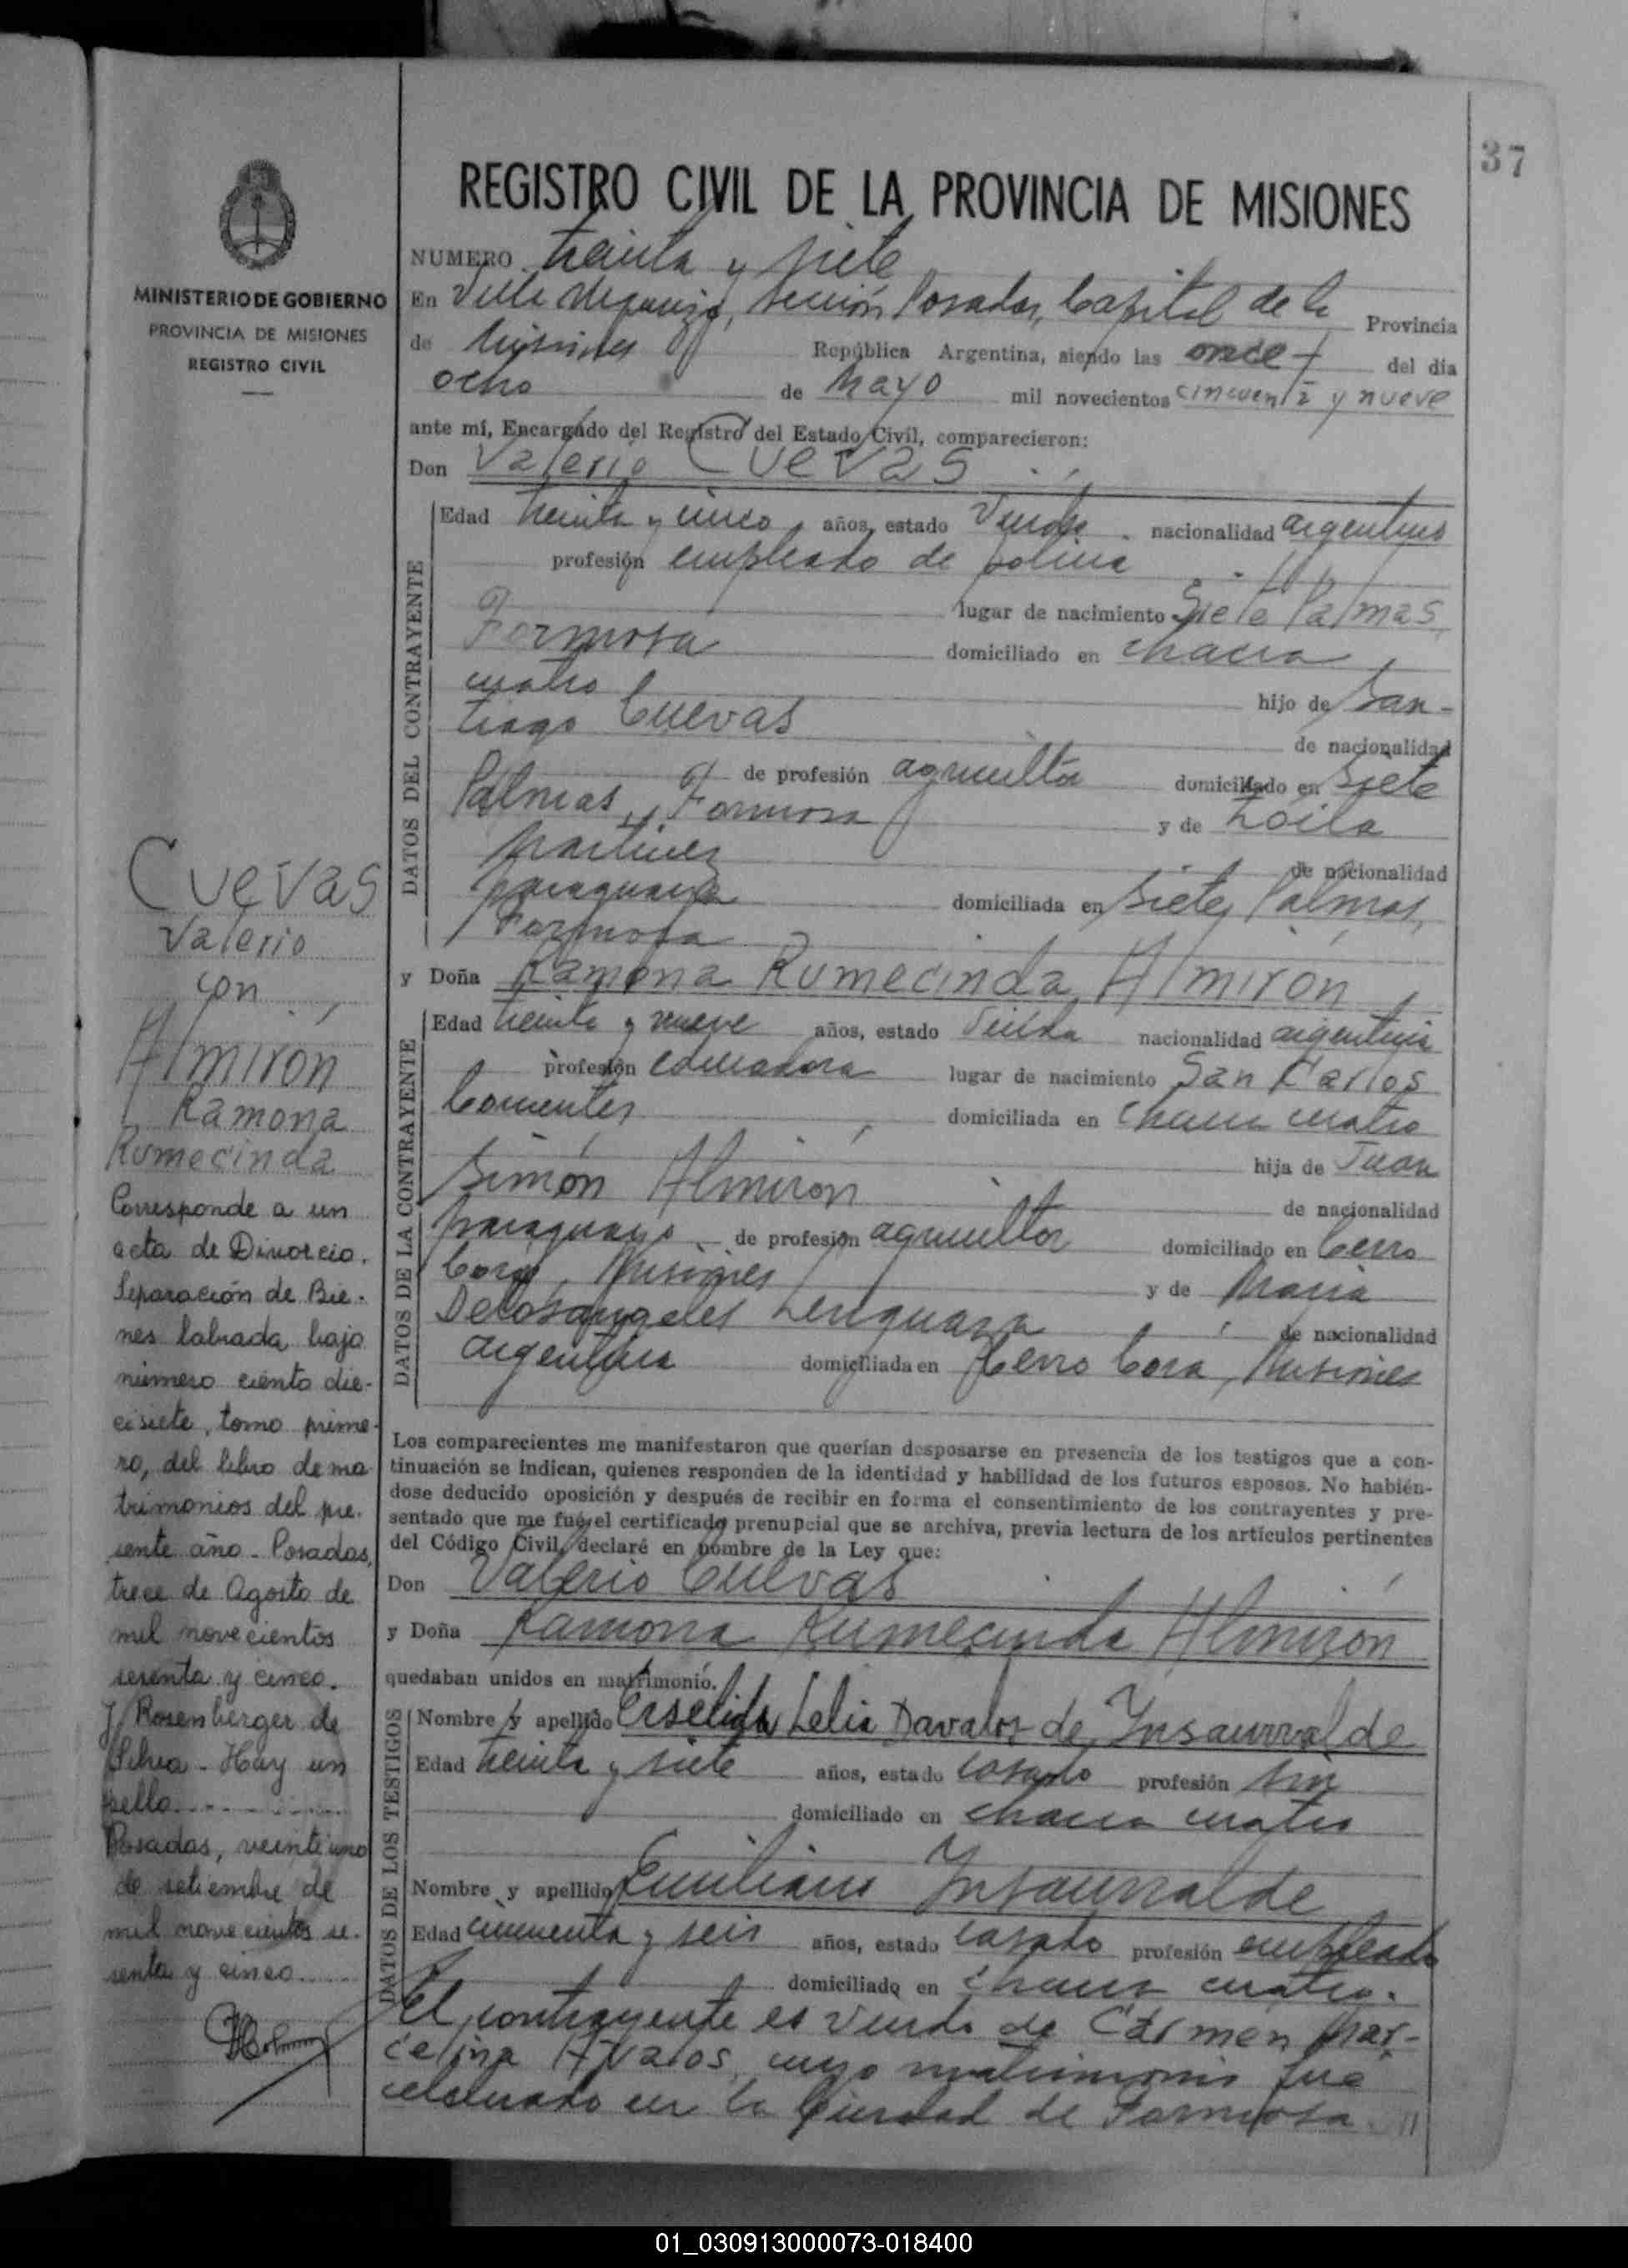 37
REGISTRO CIVIL DE LA PROVINCIA DE MISIONES
MINISTERIO DE GOBIERNO
PROVINCIA DE MISIONES
REGISTRO CIVIL
NUMERO treinta y siete
En Villa Urquiza, sección Posadas, Capital de la Provincia
de Misiones República Argentina, siendo las once del día
ocho de Mayo mil novecientos cincuenta y nueve
ante mí, Encargado del Registro del Estado Civil, comparecieron:
Don Valerio Cuevas
DATOS DEL CONTRAYENTE
Edad treinta y cinco años, estado Viudo nacionalidad argentino
profesión empleado de policia
lugar de nacimiento Siete Palmas,
Formosa domiciliado en chacra
cuatro hijo de San-
tiago Cuevas de nacionalidad
de profesión agricultor domiciliado en Siete
Palmas, Formosa y de Zoila
Martinez de nacionalidad
paraguaya domiciliada en Siete Palmas,
Formosa
y Doña Ramona Rumecinda Almirón
DATOS DE LA CONTRAYENTE
Edad treinta y nueve años, estado Viuda nacionalidad argentina
profesión lugar de nacimiento San Carlos
Corrientes domiciliada en chacra cuatro
hija de Juan
Simón Almirón de nacionalidad
paraguayo de profesión agricultor domiciliado en Cerro
Corá, Misiones y de Maria
Delosangeles Lenguaza de nacionalidad
argentina domiciliada en Cerro Cora, Misiones
Los comparecientes me manifestaron que querían desposarse en presencia de los testigos que a con-
tinuación se indican, quienes responden de la identidad y habilidad de los futuros esposos. No habién-
dose deducido oposición y después de recibir en forma el consentimiento de los contrayentes y pre-
sentado que me fué el certificado prenupcial que se archiva, previa lectura de los artículos pertinentes
del Código Civil, declaré en nombre de la Ley que:
Don Valerio Cuevas
y Doña Ramona Rumecinda Almirón
quedaban unidos en matrimonio.
DATOS DE LOS TESTIGOS
Nombre y apellido Erselida Lelia Davalos de Ynsaurralde
Edad treinta y siete años, estado casado profesión sin
domiciliado en chacra cuatro
Nombre y apellido Emiliano Ynsaurralde
Edad cincuenta y seis años, estado casado profesión empleado
domiciliado en chacra cuatro.
El contrayente es viudo de Cármen Mar-
celina Avalos, cuyo matrimonio fué
celebrado en la Ciudad de Formosa. //
Cuevas
Valerio
con
Almirón
Ramona
Rumecinda
Corresponde a un
acta de Divorcio.
Separación de Bie-
nes labrada bajo
número ciento die-
cisiete, tomo prime-
ro, del libro de ma
trimonios del pre-
sente año - Posadas,
trece de Agosto de
mil novecientos
sesenta y cinco.
J Rosenberger de
Silva - Hay un
sello
Posadas, veintiuno
de setiembre de
mil novecientos se-
senta y cinco
01_030913000073-018400